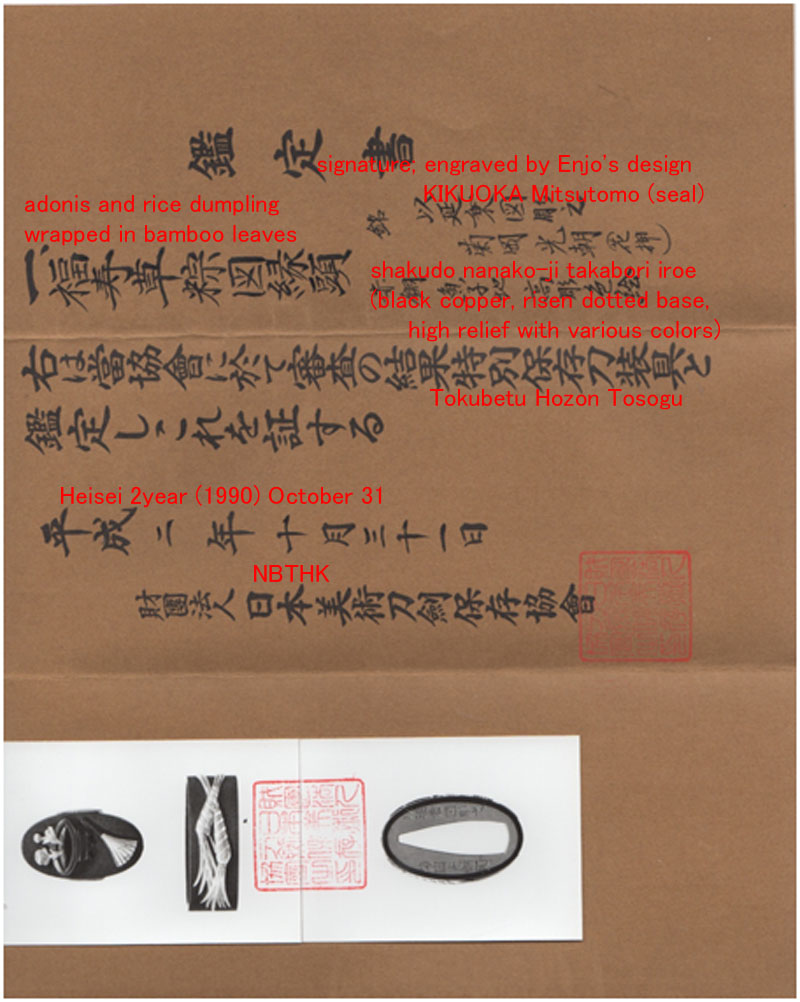 鑑定書
signature; engraved by Enjo's design
KIKUOKA Mitsutomo (seal)
adonis and rice dumpling
wrapped in bamboo leaves
銘 以延乗図
菊岡光朝(花押)
一、福寿草粽図縁頭
shakudo nanako-ji takabori iroe
赤銅魚子地高彫色絵
(black copper, risen dotted base,
high relief with various colors)
右は當協會に於て審査の結果特別保存刀装具と
Tokubetu Hozon Tosogu
鑑定しこれを証する
Heisei 2year (1990) October 31
平成二年十月三十一日
NBTHK
財團法人日本美術刀劍保存協會